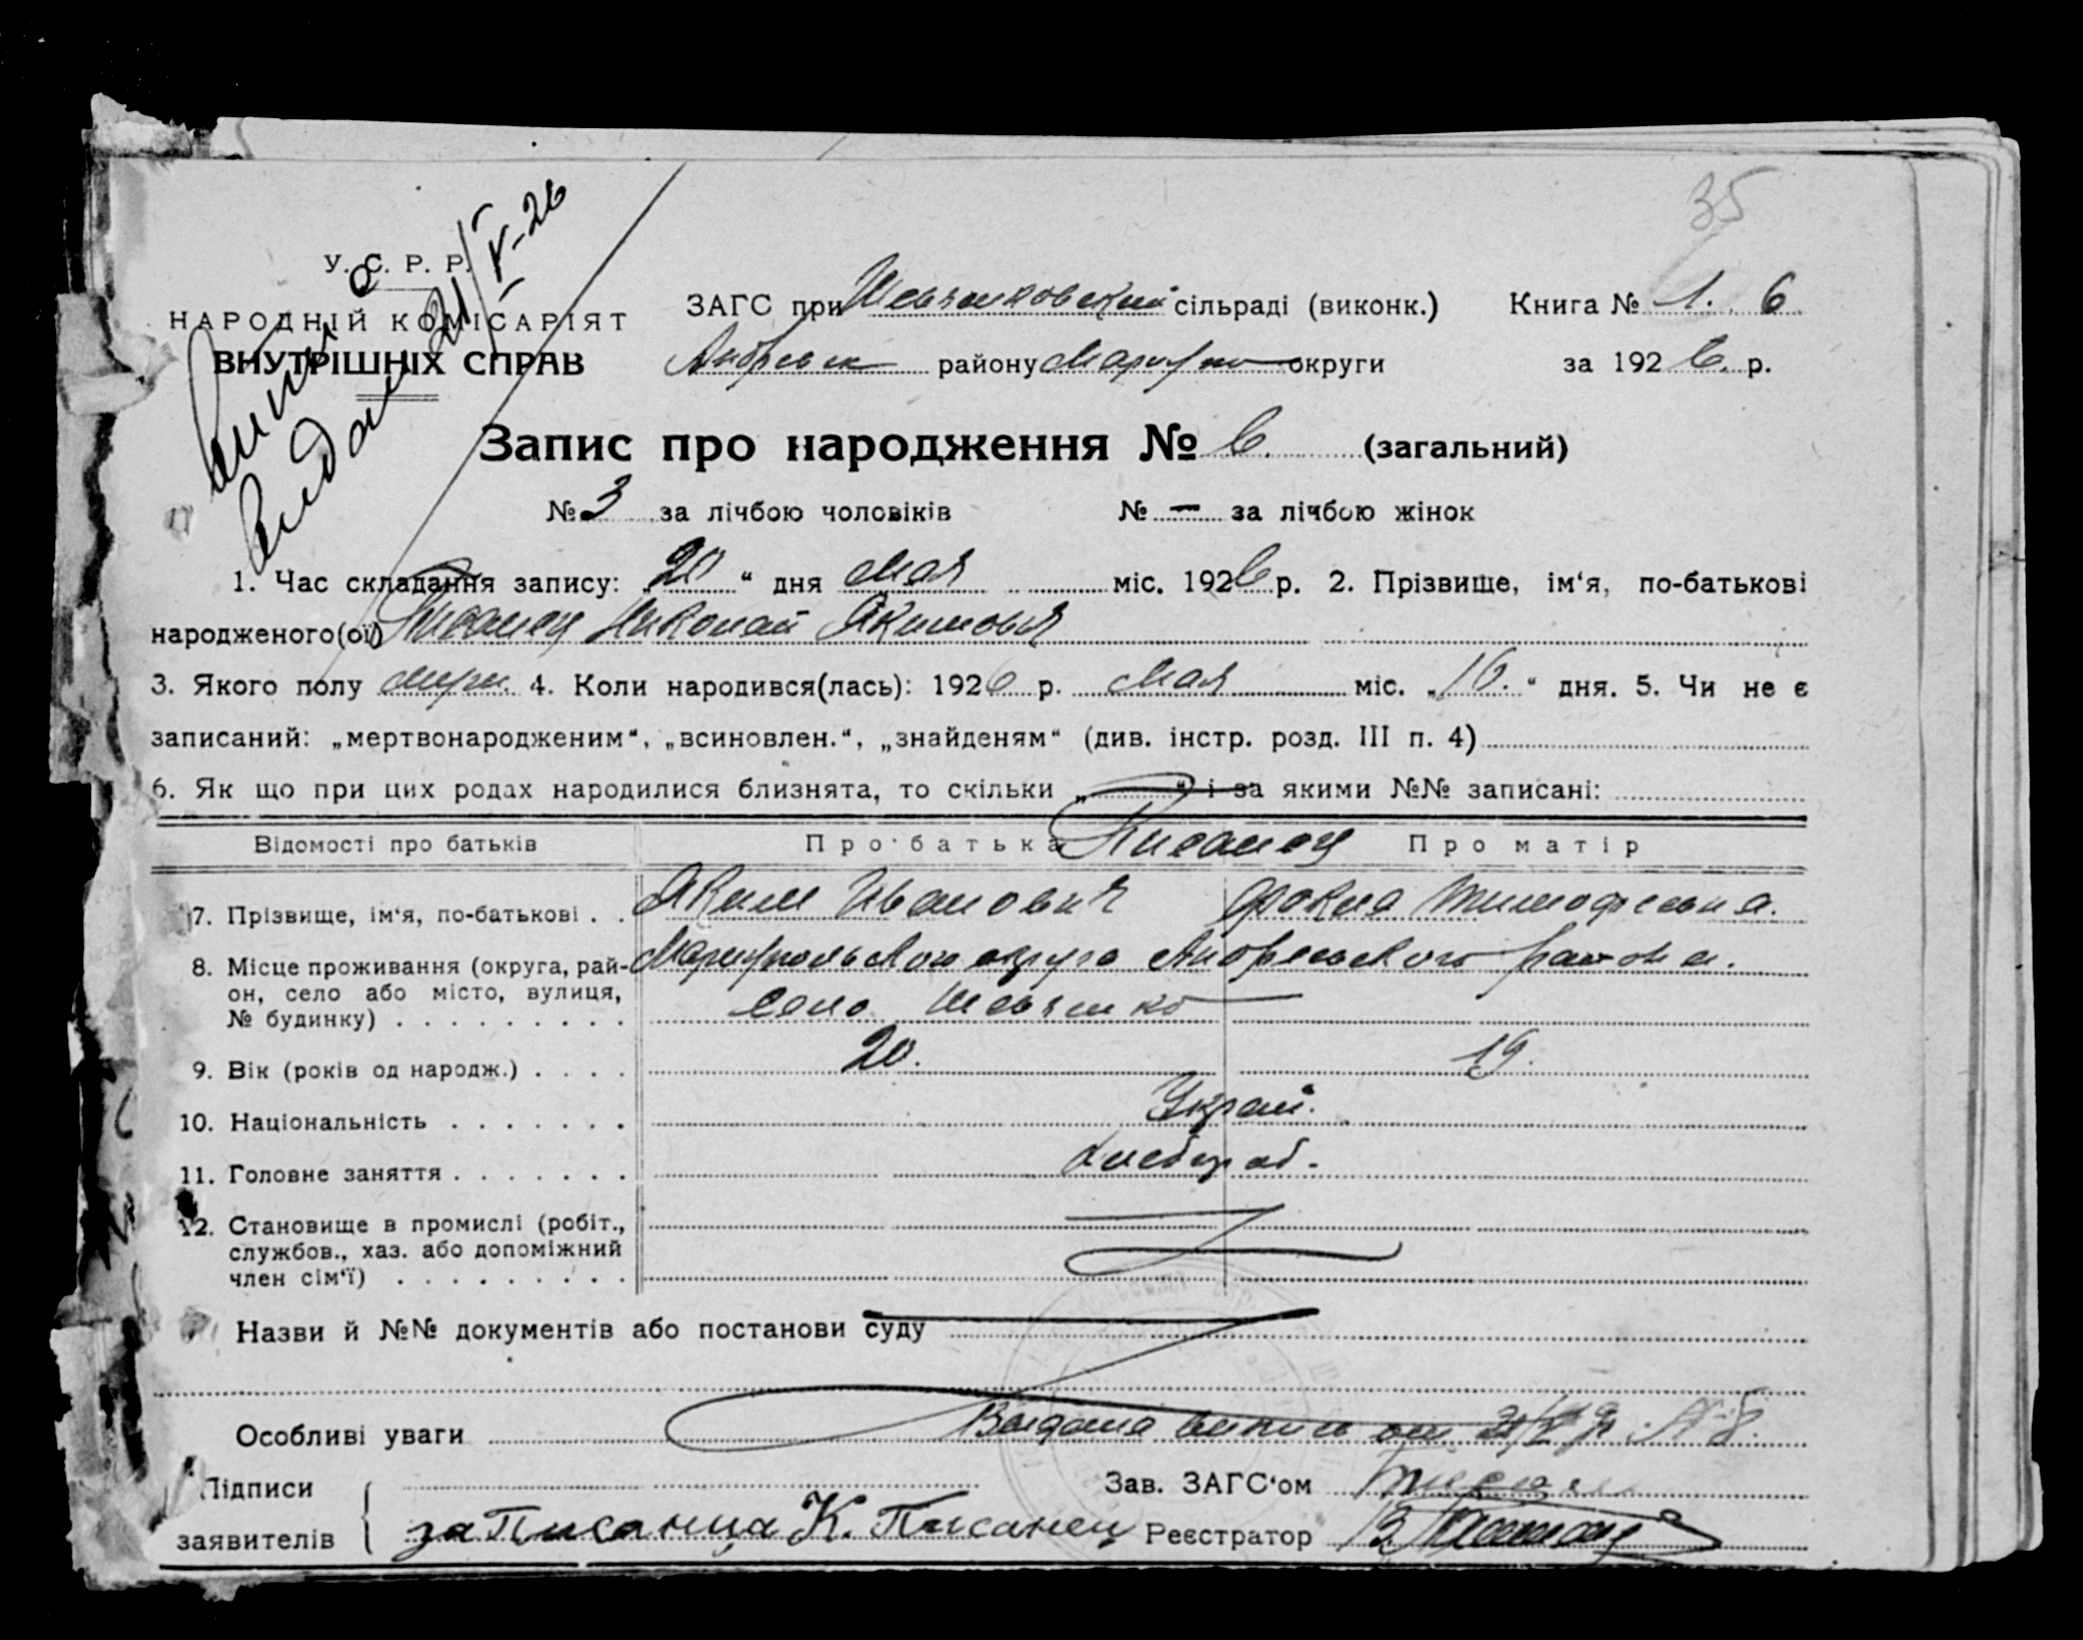 35
У. С. Р. Р.
НАРОДНІЙ КОМІСАРІЯТ
ВНУТРІШНІХ СПРАВ
21/V-26
ЗАГС при Шевченковский сільраді (виконк.) Книга № 1. 6
району округи за 1926. р.
Запис про народження № 6. (загальний)
№ 3 за лічбою чоловіків № — за лічбою жінок
1. Час складання запису: „20“ дня мая міс. 1926 р. 2. Прізвище, ім‘я, по-батькові
народженого(ої) Писанец Николай Якимович
3. Якого полу 4. Коли народився(лась): 1926 р. мая міс. „16.“ дня. 5. Чи не є
записаний: „мертвонародженим“, „всиновлен.“, „знайденям“ (див. інстр. розд. III п. 4)
6. Як що при цих родах народилися близнята, то скільки „ “ і за якими №№ записані:
Відомості про батьків Про батька Писанец Про матір
7. Прізвище, ім‘я, по-батькові . . Яким Иванович Фокла Тимофеевна.
8. Місце проживання (округа, рай- Андреевского района.
он, село або місто, вулиця, село
№ будинку) . . . . . . . . .
9. Вік (років од народж.) . . . . 20. 19.
10. Національність . . . . . . . Украй.
11. Головне заняття . . . . . . . хлебороб.
12. Становище в промислі (робіт.,
службов., хаз. або допоміжний
член сім‘ї) . . . . . . . . .
Назви й №№ документів або постанови суду
Особливі уваги Выдана выпись
Підписи Зав. ЗАГС‘ом
заявителів за Писанца К. Писанец Реєстратор